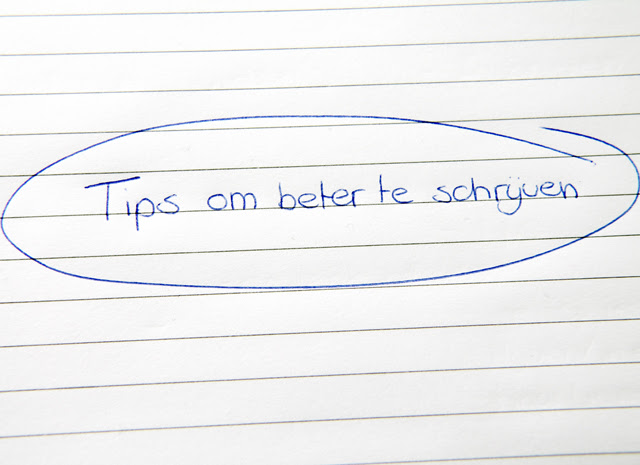 Tips om beter te schrijven